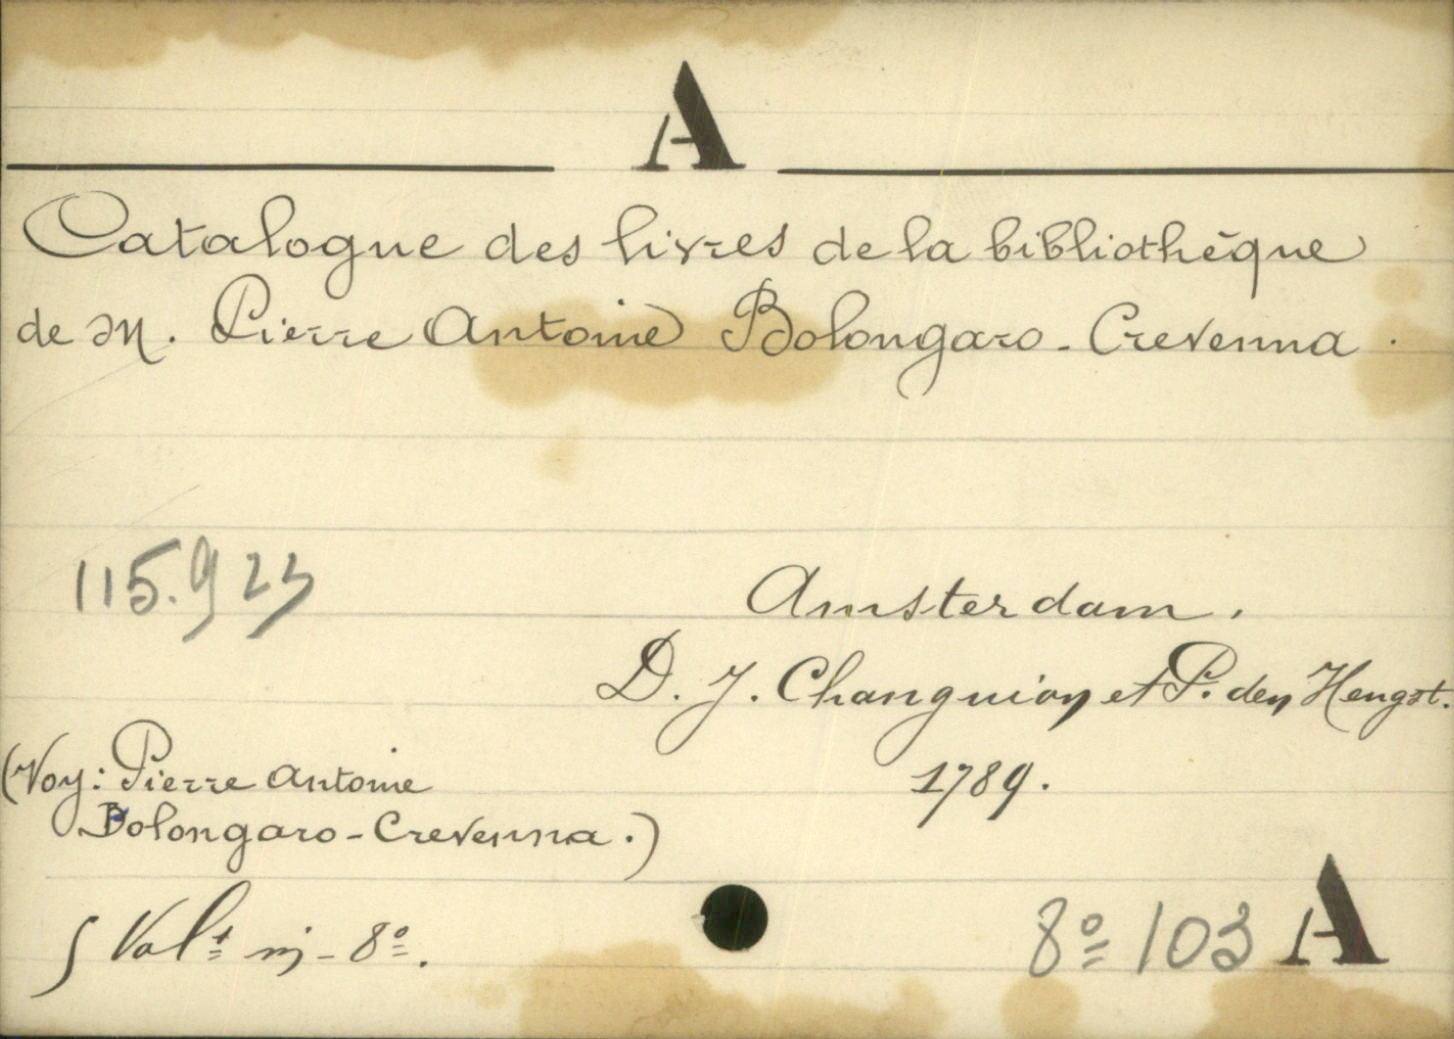 A
Catalogue des livres de la bibliothèque
de M. Pierre Antoine Bolongaro-Crevenna.
115.923
Amsterdam.
D. J. Changuion et P. den Hengst.
1789.
(Voy: Pierre Antoine
Bolongaro-Crevenna.)
5 Vol.s in-8º.
8º 103 A